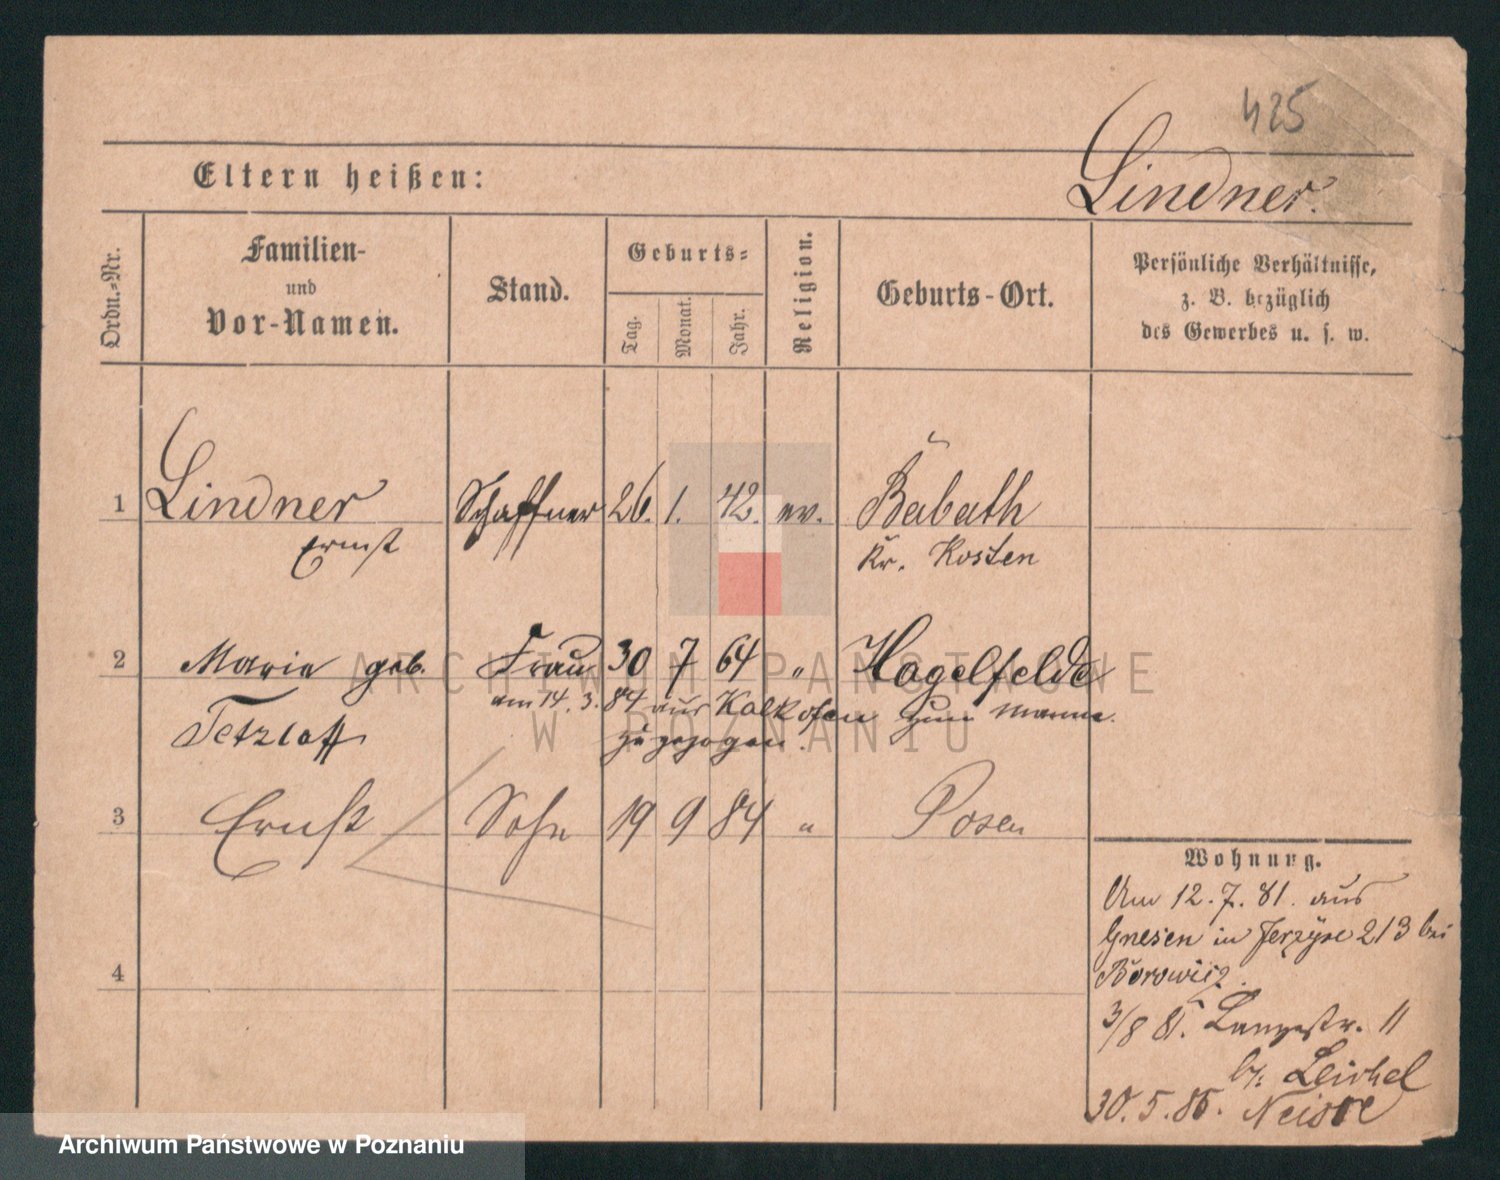 425
Eltern heißen:
Lindner.
Ordn.-Nr.
Familien-
und
Vor-Namen.
Stand.
Geburts-
Tag.
Monat.
Jahr.
Religion.
Geburts-Ort.
Persönliche Verhältnisse,
z. B. bezüglich
des Gewerbes u. s. w.
1 Lindner Schaffner 26. 1. 42. ev. Babath
Ernst Kr. Kosten
2 Marie geb. Frau 30 7 64 " Hagelfelde
am 14. 3. 84 aus Kalkofen zum Manne
Tetzlaff zugezogen.
3 Ernst Sohn 19 9 84 " Posen
4
Wohnung.
Am 12. 7. 81. aus
Gnesen in 213 bei
Borowicz.
3/8 81. Langestr. 11
b.
30. 5. 85. Neisse
ARCHIWUM PAŃSTWOWE
W POZNANIU
Archiwum Państwowe w Poznaniu